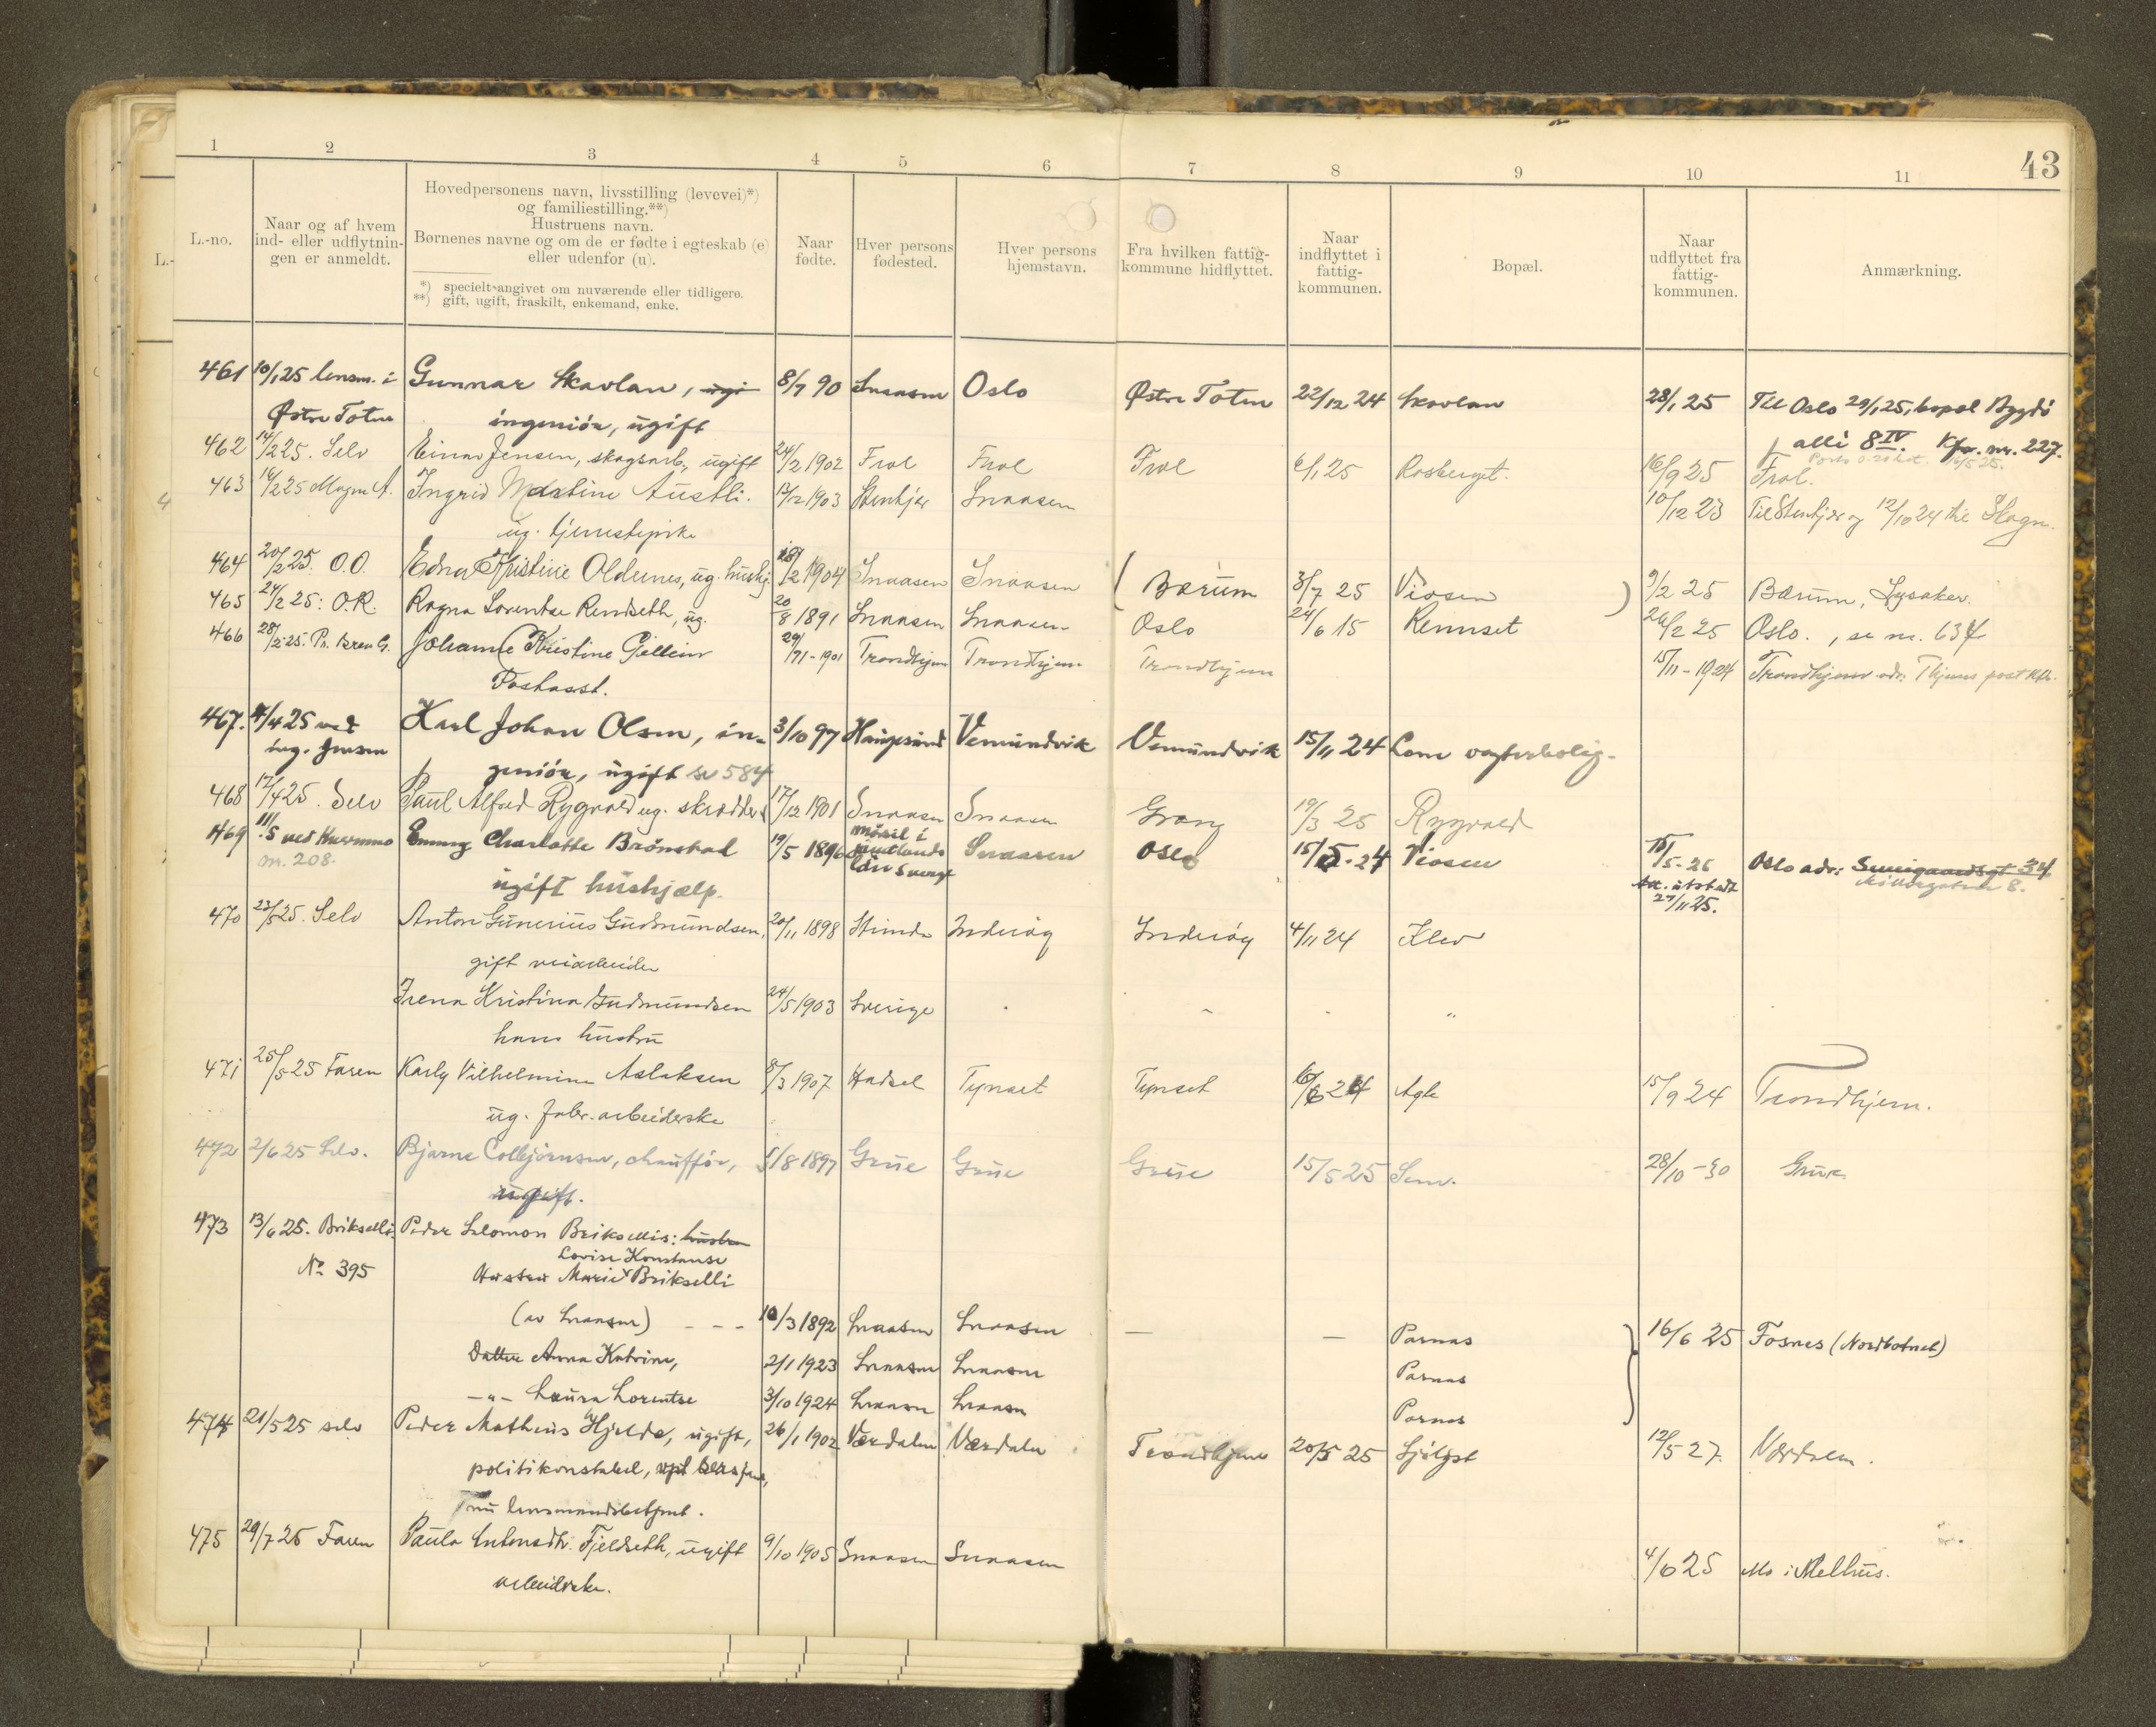 43
1 2 3 4 5 6 7 8 9 10 11
L.-no.
Naar og af hvem
ind- eller udflytnin-
gen er anmeldt.
Hovedpersonens navn, livsstilling (levevei)*)
og familiestilling.**)
Hustruens navn.
Børnenes navne og om de er fødte i egteskab (e)
eller udenfor (u).
*) specielt angivet om nuværende eller tidligere.
**) gift, ugift, fraskilt, enkemand, enke.
Naar
fødte.
Hver persons
fødested.
Hver persons
hjemstavn.
Fra hvilken fattig-
kommune hidflyttet.
Naar
indflyttet i
fattig-
kommunen.
Bopæl.
Naar
udflyttet fra
fattig-
kommunen.
Anmærkning.
461 10/1 25 lensm. i Gunnar Skavlan, 8/7 90 Snaasen Oslo Østre Toten 22/12 24 Skavlan 28/1 25 Til Oslo 29/1 25, bopæl Bygdö
Østre Toten ingeniör, ugift alli 8 IV. Kfr. nr. 227.
462 14/2 25. Selv Einar Jensen, skogsarb., ugift 24/2 1902 Frol Frol Frol 6/1 25 Rosberget. 16/9 25 Frol.
463 16/2 25 Magne A. Ingrid Martine Austli. 1903 Stenkjær Snaasen 10/12 23 Til Stenkjær og 12/10 24 til
ug. tjenestepike
464 20/2 25. O.O. Edna Kristine Oldernes, ug. hushj. 18/2 1904 Snaasen Snaasen ( Bærum 3/7 25 Viosen ) 9/2 25 Bærum, Lysaker.
465 24/2 25: O.R. Ragna Lorentse Rendseth, ug. 20/8 1891 Snaasen Snaasen Oslo 24/6 15 Rennset 26/2 25 Oslo. , se nr. 634
466 28/2 25. Johanne Kristine Gjellein 1901 Trondhjem Trondhjem Trondhjem 15/11 - 1924 Trondhjem adr. Thjems postktr.
Postasst.
467. 4/4 25 ved Karl Johan Olsen, in- 3/10 97 Haugesund Vemundvik Vemundvik 15/11 24 Lene vogterbolig.
ing. Jensen geniör, ugift se 584
468 17/4 25. Selv Paul Alfred Rygvold ug. skrædder 17/12 1901 Snaasen Snaasen Grong 19/3 25 Rygvold
469 11/5 ved Emmy Charlotte Brönstad 19/5 1896 Mörsil i Jämtlands län Sverge Snaasen Oslo 15/5-24 Viosen 15/5-25 Oslo adr: Schweigaardsgt 34
nr. 208. ugift hushjælp. Møllergaten 8.
Att. utstedt
27/11 25.
470 23/5 25. Selv Anton Gunerius Gudmundsen, 20/11 1898 Strinda Inderöy Inderöy 4/11 24 Klev
gift veiarbeider
Irena Kristina Gudmundsen 24/5 1903 Sverige
hans hustru
471 25/5 25 Faren Karly Vilhelmine Aslaksen 8/3 1907 Hadsel Tynset Tynset 16/6 24 Agle 15/9 24 Trondhjem.
ug. fabr.arbeiderske
472 2/6 25 Selv. Bjarne Colbjörnsen, chauffør, 5/8 1897 Grue Grue Grue 15/5 25 Sem. 28/10 - 30 Grue
ugift.
473 13/6 25. Brikselli. Peder Salomon Briksellis: hustru
No 395 Lovise Konstanse
Hustru Marie Brikselli
(av Snaasen) - - - 10/3 1892 Snaasen Snaasen — — Parnas 16/6 25 Fosnes (Nordbotnet)
Datter Anna Katrine, 2/1 1923 Snaasen Snaasen Parnas
-"- Laura Lorentse 3/10 1924 Snaasen Snaasen Parnas
474 21/5 25 selv Peder Matheus Hjelde, ugift, 26/1 1902 Værdalen Værdalen Trondhjem 20/5 25 Sjölyst 12/5 27. Værdalen.
politikonstabel,
nu lensmandsbetjent.
475 29/7 25 Faren Paula Antonsdtr. Fjeldseth, ugift 9/10 1905 Snaasen Snaasen 4/6 25 Mo i Melhus.
arbeiderske.